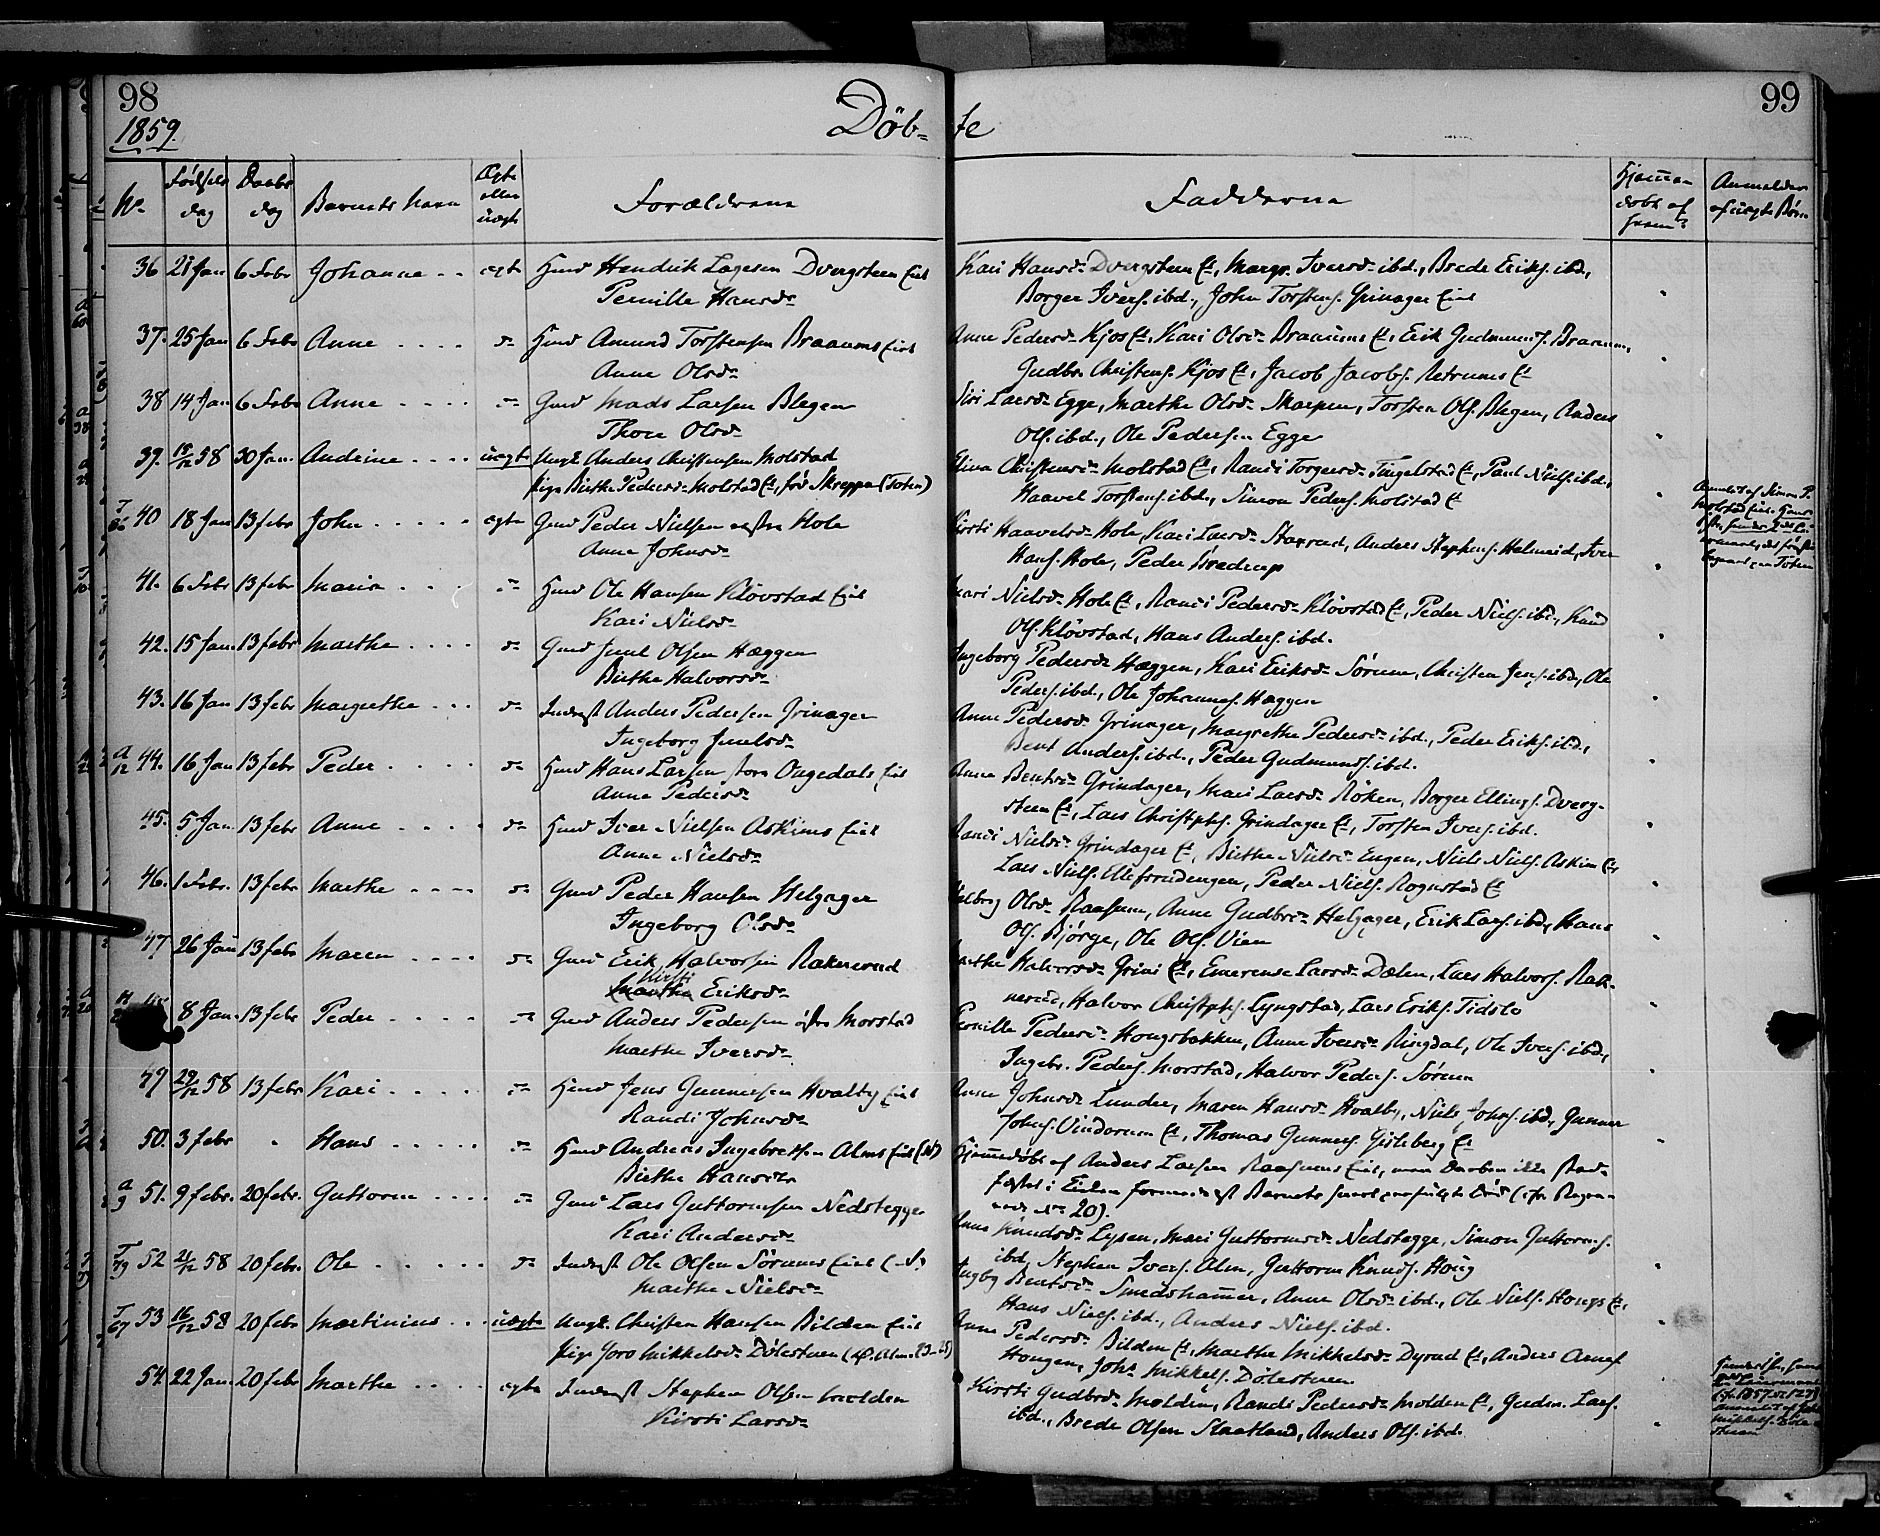 98
99
1859.
Døb= te
No
Fødsels dag
Daabs dag
Barnets Navn
Ægte eller uægte
Forældrene
Fadderne
Hjemmedøbt af hvem?
Anmeldes af uægte Børn
36 21 Jan 6 Febr Johanne ægte Hmd Hendrik Lagesen Dvergsteen Eiet
Pernille Hansdr
Kari Hansdr Dvergsteen Et, Margr. Iversdr ibd., Brede Eriks. ibd.,
Borger Ivers. ibd., John Torstens. Grinager Eiet
37. 25 Jan 6 Febr Anne Hmd Amund Torstensen Braaums Eiet
Anne Olsdr
Anne Pedersdr Kjos Et, Kari Olsdr Braaums Et, Erik Gudmunds. Braaum,
Gudbr. Christens. Kjos Et, Jacob Jacobs. Et
38 14 Jan 6 Febr Anne Gmd Mads Larsen Blegen
Thore Olsdr
Siri Larsdr Egge, Marthe Olsdr Skarpen, Torsten Ols. Blegen, Anders
Ols. ibd., Ole Pedersen Egge
39. 58 30 Jan. Andrine uægte Ungk. Anders Christensen Molstad
Pige Birthe Pedersdr Molstad Et, fød Skreppen (Toten)
Christensdr Molstad Et, Randi Torgersdr Tingelstad Et, Paul Niels. ibd.,
Haavel Torstens. ibd., Simon Peders. Molstad Et
40 18 Jan 13 febr John ægte Gmd Peder Nielsen Hole
Anne Johnsdr
Kirsti Haavelsdr Hole, Kari Larsdr Staxrud, Anders Stephens. Helmeid, Iver
Hans. Hole, Peder Bredrup
41. 6 Febr 13 febr Maria Hmd Ole Hansen Kløvstad Eiet
Kari Nielsdr
Mari Nielsdr Hole Et, Randi Pedersdr Kløvstad Et, Peder Niels. ibd., Knud
Ols. Kløvstad, Hans Anders. ibd.
42. 15 Jan. 13 febr Marthe Gmd Juul Olsen Hæggen
Birthe Halvorsdr
Ingeborg Pedersdr Hæggen, Kari Eriksdr Sørum, Christen Jens. ibd., Ole
Peders. ibd., Ole Johannes. Hæggen
43. 16 Jan 13 febr Margrethe Inderst Anders Pedersen Grinager
Ingeborg Juulsdr
Anne Pedersdr Grinager, Margrethe Pedersdr ibd., Peder Eriks. ibd.,
Bent Anders. ibd., Peder Gudmunds. ibd.
44. 16 Jan 13 febr Peder Hmd Hans Larsen store Ongedals Eiet
Anne Pedersdr
Anne Bentsdr Grindager, Mari Larsdr Røken, Borger Ellings. Dverg-
steen Et, Lars Christophs. Grindager Et, Torsten Ivers. ibd.
45. 5 Jan 13 febr Anne Hmd Iver Nielsen Askims Eiet
Anne Nielsdr
Randi Nielsdr Grindager Et, Birthe Nielsdr Engen, Niels Niels. Askim Et
Lars Niels. Ulfsrudengen, Peder Niels. Rognstad Et
46. 1 Febr. 13 febr Marthe Gmd Peder Hansen Helgager
Ingeborg Olsdr
Olsdr Raasum, Anne Gudbrdr Helgager, Erik Lars. ibd., Hans
Ols. Bjørge, Ole Ols. Vien
47 26 Jan 13 febr Maren Gmd Erik Halvorsen Raknerud
Kirsti
Marthe Eriksdr
Marthe Halvorsdr Grini Et, Emerense Larsdr Dælen, Lars Halvors. Rak-
nerud, Halvor Christophs. Lyngstad, Lars Eriks. Tidslo
8 Jan. 13 febr Peder Gmd Anders Pedersen østre Morstad
Marthe Iversdr
Pernille Pedersdr Hougsbakken, Anne Iversdr Ringdal, Ole Ivers. ibd.,
Ingebr. Peders. Morstad, Halvor Peders. Sørum
49 29/12 58 13 febr Kari Hmd Jens Gunnersen Hvalby Eiet
Randi Johnsdr
Anne Johnsdr Lunder, Maren Hansdr Hvalby, Niels Johns. ibd., Gunner
Johns. Vindorum Et, Thomas Gunners. Gisleberg Et
50. 3 febr Hans Hmd Andreas Ingebretsen Alms Eiet
Birthe Hansdr
Hjemmedøbt af Anders Larsen Raasums Eiet, men Daaben ikke stad-
fæstet i Kirken formedelst Barnets snart paafulgte Død
No 20).
51. 9 febr. 20 febr. Guttorm Gmd Lars Guttormsen Nedstegge
Kari Andersdr
Anne Knudsdr Lysen, Mari Guttormsdr Nedstegge, Simon Guttorms.
ibd., Stephen Ivers. Alm, Guttorm Knuds. Houg
52 21/12 58 20 febr. Ole Inderst Ole Olsen Sørums Eiet
Marthe Nielsdr
Ingbg Bentsdr Smedshammer, Anne Olsdr ibd., Ole Niels. Hougs Et,
Hans Niels. ibd., Anders Niels. ibd.
53 16/12 58 20 febr Martinius uægte Ungk. Christen Hansen Bilden Eiet
Pige Joro Mikkelsdr Dølestuen
Anne Pedersdr Bilden Et, Marthe Mikkelsdr Dyrud Et, Anders Arnes.
Hougen, Johs Mikkels. Dølestuen
54. 22 Jan. 20 febr Marthe ægte Inderst Stephen Olsen Molden
Kirsti Larsdr
Kirsti Gudbrdr Molden, Randi Pedersdr Molden Et, Gudm. Lars.
ibd., Brede Olsen Skaatland, Anders Ols. ibd.
Anmeldt af Simon P.
Molstad Eiet